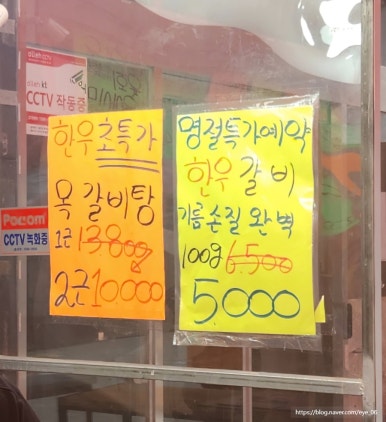 olleh kt
CCTV 작동중
한우 초특가
목 갈비탕
1근 13,800
2근 10000
명절특가예약
한우 갈비
기름손질 완벽
100g 6.500
5000
Pocom
CCTV 녹화중
https://blog.naver.com/eye_06